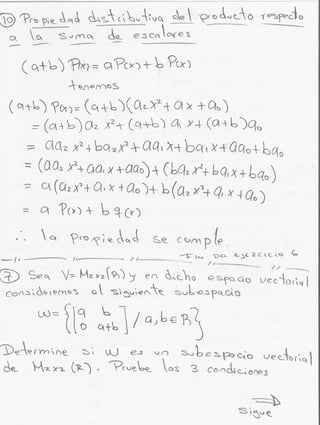 ⑩ Propiedad distributiva del producto respecto
a la suma de escalares
(a+b) P(x) = a P(x) + b P(x)
tenemos
(a+b) P(x) = (a+b)(a₂x² + a₁x + a₀)
= (a+b)a₂ x² + (a+b) a₁ x + (a+b)a₀
= aa₂x² + ba₂x² + aa₁x + ba₁x + aa₀ + ba₀
= (aa₂x² + aa₁x + aa₀) + (ba₂x² + ba₁x + ba₀)
= a(a₂x² + a₁x + a₀) + b(a₂x² + a₁x + a₀)
= a P(x) + b q(x)
∴ la propiedad se cumple.
FIN DEL EJERCICIO 6
⑦ Sea V = M2x2(R) y en dicho espacio vectorial
consideremos el siguiente subespacio
W = {[a b
0 a+b] / a, b ∈ R}
Determine si W es un subespacio vectorial
de M2x2 (R). Pruebe las 3 condiciones
⇒
Sigue